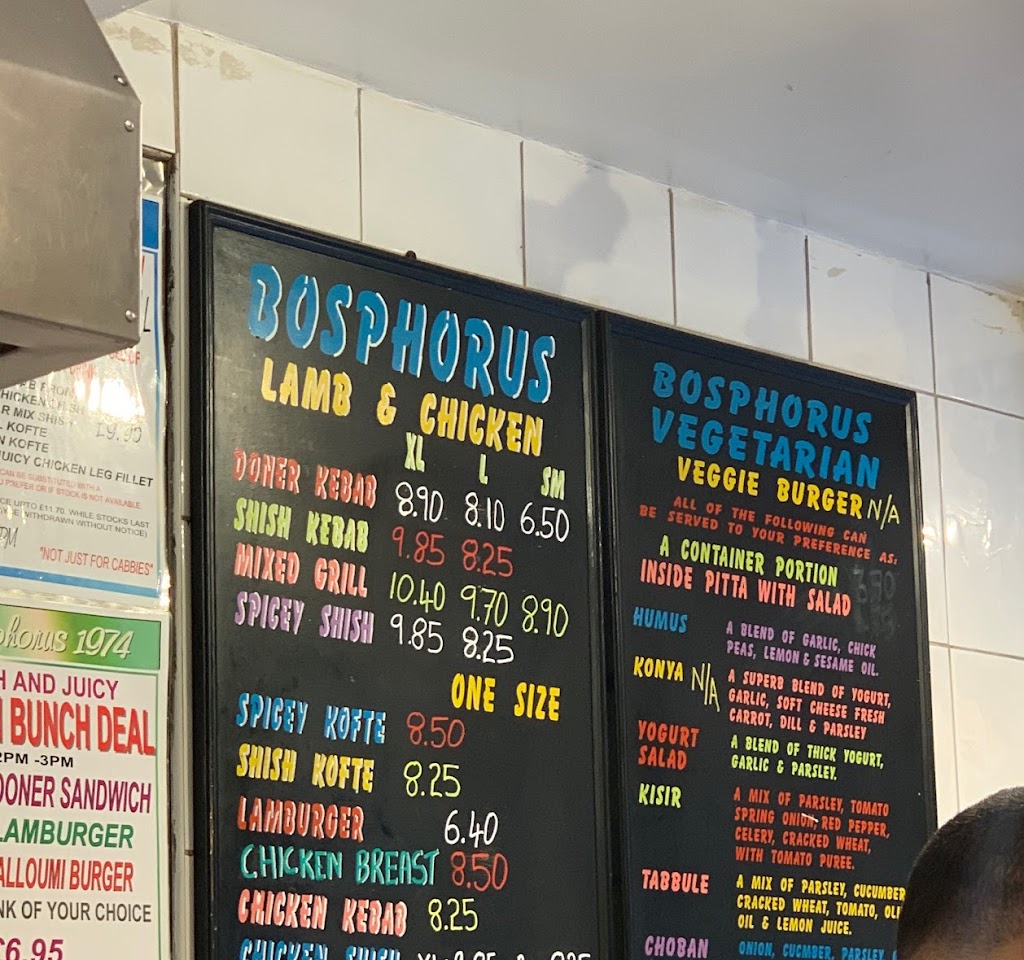 £9.95
L KOFTE
N KOFTE
JUICY CHICKEN LEG FILLET
CAN BE SUBSTITUTED WITH A
U PREFER OR IF STOCK IS NOT AVAILABLE
CE UPTO £11.70. WHILE STOCKS LAST
WITHDRAWN WITHOUT NOTICE)
PM
"NOT JUST FOR CABBIES"
phorus 1974
H AND JUICY
BUNCH DEAL
2PM -3PM
DONER SANDWICH
LAMBURGER
ALLOUMI BURGER
NK OF YOUR CHOICE
£6.95
BOSPHORUS
LAMB & CHICKEN
XL L SM
DONER KEBAB 8.90 8.10 6.50
SHISH KEBAB 9.85 8.25
MIXED GRILL 10.40 9.70 8.90
SPICEY SHISH 9.85 8.25
ONE SIZE
SPICEY KOFTE 8.50
SHISH KOFTE 8.25
LAMBURGER 6.40
CHICKEN BREAST 8.50
CHICKEN KEBAB 8.25
CHICKEN SHISH
BOSPHORUS
VEGETARIAN
VEGGIE BURGER N/A
ALL OF THE FOLLOWING CAN
BE SERVED TO YOUR PREFERENCE AS:
A CONTAINER PORTION
INSIDE PITTA WITH SALAD
HUMUS
A BLEND OF GARLIC, CHICK
PEAS, LEMON & SESAME OIL.
KONYA N/A
A SUPERB BLEND OF YOGURT,
GARLIC, SOFT CHEESE FRESH
CARROT, DILL & PARSLEY
YOGURT
SALAD
A BLEND OF THICK YOGURT,
GARLIC & PARSLEY.
KISIR
A MIX OF PARSLEY, TOMATO
SPRING ONION, RED PEPPER,
CELERY, CRACKED WHEAT,
WITH TOMATO PUREE.
TABBULE
A MIX OF PARSLEY, CUCUMBER
CRACKED WHEAT, TOMATO, OLI
OIL & LEMON JUICE.
CHOBAN
ONION, CUCMBER, PARSLEY